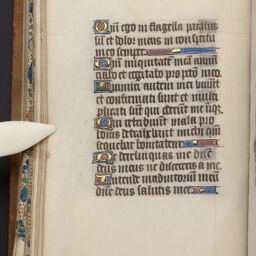 Qm ego in flagella paratus
su et dolor meus in conspectu
meo semper
Qm iniquitate mea annun
ciabo et cogitabo pro pcto meo
Inimici autem mei vivunt
et confirmati sunt et multi
plicati sunt qui oderut me iniq
Qui retribuunt mala pro
bonis detrahebant michi qm
sequebar bonitatem
Ne derelinquas me dne
deus meus ne discesseris a me
Intende in adiutorium meu
dne deus salutis mee